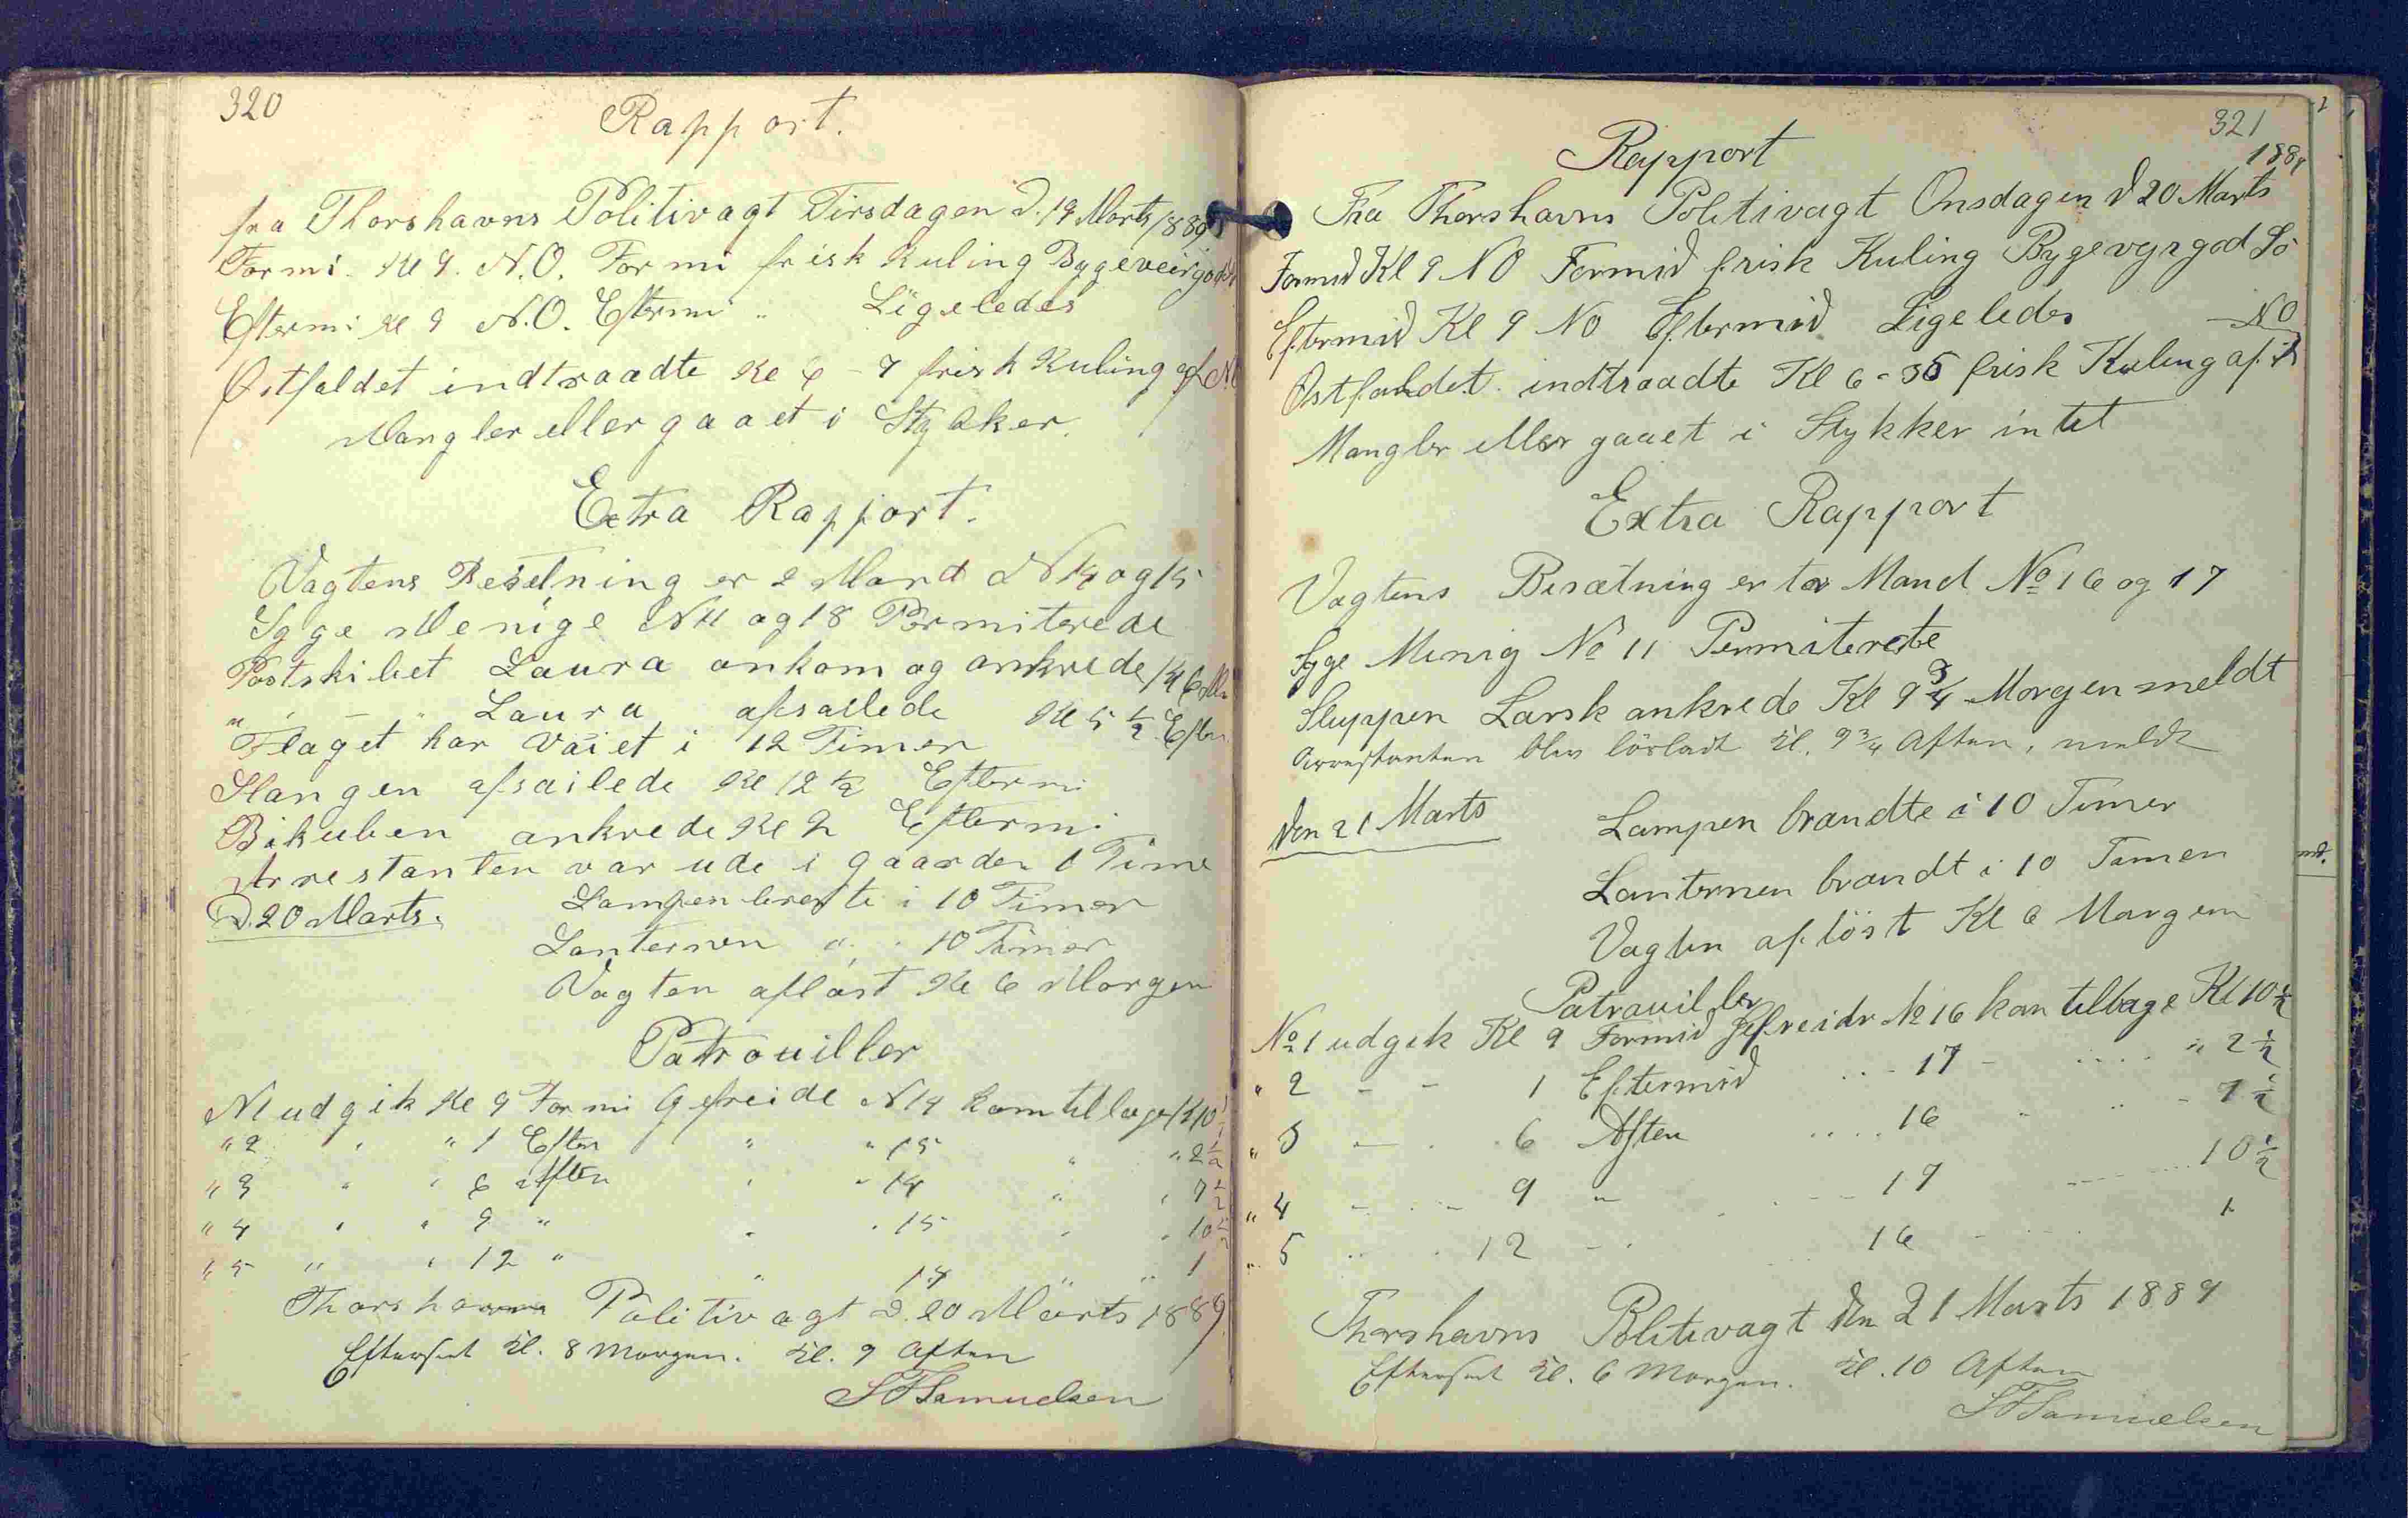 320
Rapport.
fra Thorshavns Politivagt Tirsdagen D. 19 Marts 1889
Formi. Kl 9. N.O. Formi frisk Kuling Bygeveir god
Eftermi Kl 9 N.O. Eftermi " Ligeledes
Østfaldet indtraadte Kl 6 - 7 frisk Kuling af N.O
Mangler eller gaaet i Stykker.
Extra Rapport.
Vagtens Besetning er 2 Mand N 14 og 15
Syge Menige N 11 og 18 Permiterede
Postskibet Laura ankom og ankrede Kl 6 Mo
" - - " Laura afsailede Kl 5 ½ Efter
Flaget har vaiet i 12 Timer
Slangen afsailede Kl 12 ½ Eftermi
Bikuben ankrede Kl 2 Eftermi
Arrestanten var ude i gaarden 1 Time
D. 20 Marts. Lampen brente i 10 Timer
Lanternen " " 10 Timer
Vagten afløst Kl 6 Morgen
Patrouiller
N 1 udgik Kl 9 Formi Gefreide N 14 kom tilbage Kl 10 ½
" 2 " " 1 Efter " " 15 " " 2 ½
" 3 " " 6 Aften " " 14 " " 7 ½
" 4 " " 9 " " " 15 " " 10 ½
" 5 " " 12 " " 14 " " 1
Thorshavns Politivagt D. 20 Marts 1889.
Efterseet Kl. 8 Morgen. Kl. 9 Aften
SFSamuelsen
321
Rapport
1889
Fra Thorshavns Politivagt Onsdagen d 20 Marts
Formid Kl 9 NO Formid frisk Kuling Bygevejr god Sö
Eftermid Kl 9 NO Eftermid Ligeledes
NO
Østfaldet indtraadte Kl 6 - 35 frisk Kuling af
Mangler eller gaaet i Stykker intet
Extra Rapport
Vagtens Besætning er to Mand No 16 og 17
Syge Menig No 11 Permiterede
Sluppen Larsk ankrede Kl 9 ¾ Morgen meldt
Arrestanten blev lösladt Kl. 9 ¾ Aften, meldt
Den 21 Marts Lampen brændte i 10 Timer
Lanternen brændt i 10 Timer
Vagten aflöst Kl 6 Morgen
Patrouiller
No 1 udgik Kl 9 Formid Gefreide No 16 kom tilbage Kl 10 ½
" 2 - - 1 Eftermid - 17 - " 2 ½
" 3 - - 6 Aften - 16 " " - 7 ½
" 4 - - 9 " - 17 - 10 ½
" 5 " " 12 - 16 - 1
Thorshavns Politivagt den 21 Marts 1889
Efterseet Kl. 6 Morgen. Kl. 10 Aften
SFSamuelsen